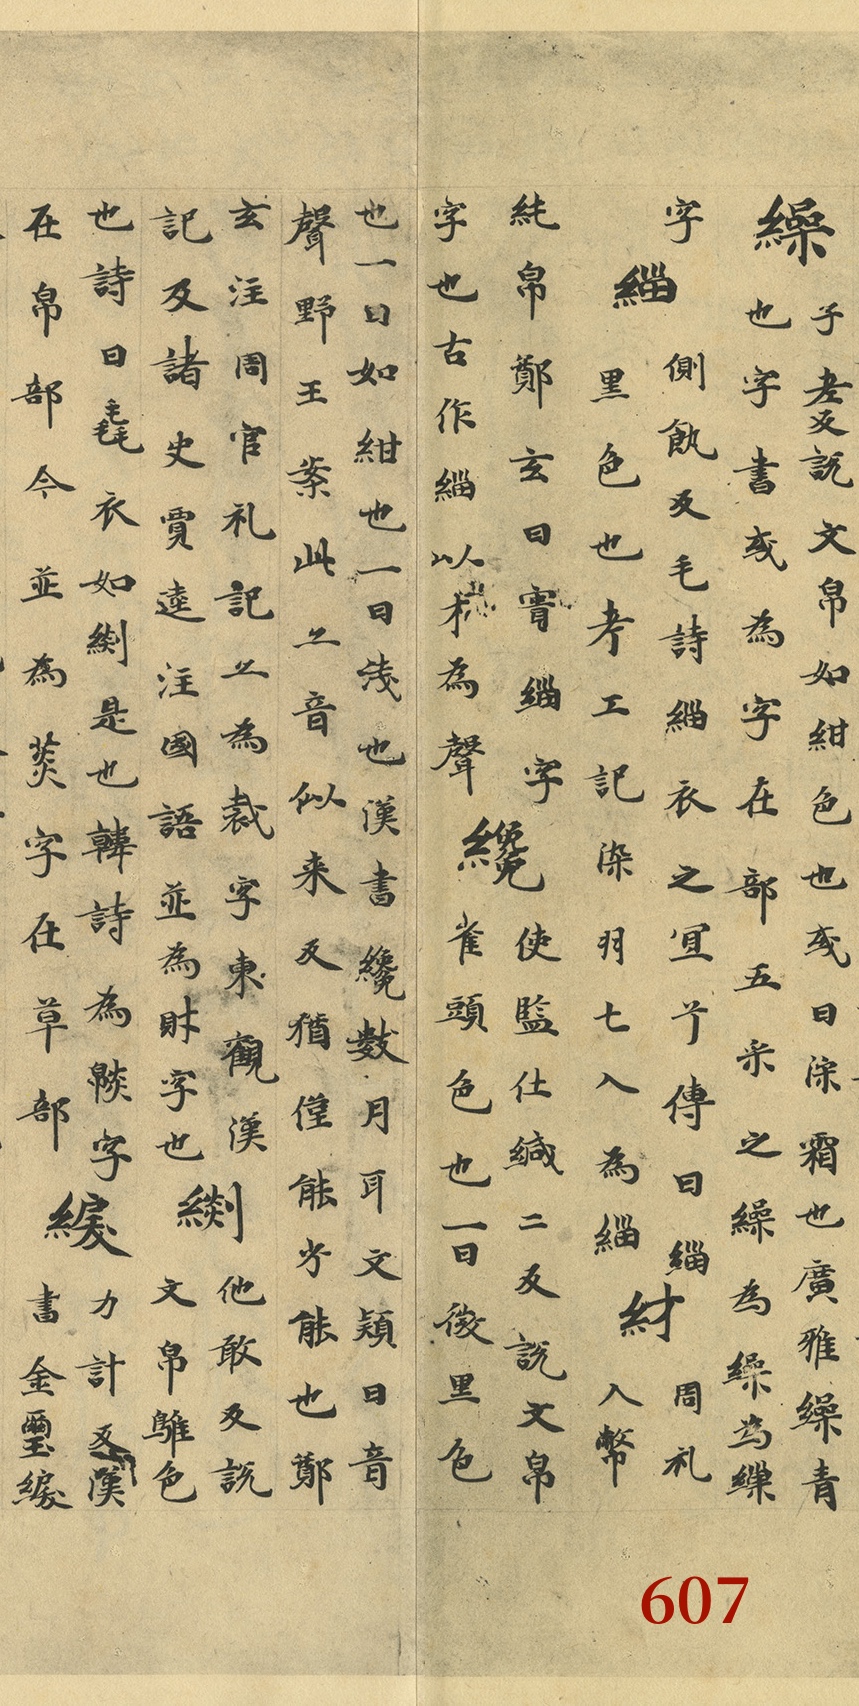 繰
子老反說文帛如紺色也或曰深霜也廣雅繰青
也字書或為字在部五采之繰為繰為繅
字
緇
側飢反毛詩緇衣之冝兮傳曰緇
黑色也考工記染羽七入為緇
䊷
周礼
入幣
純帛鄭玄曰實緇字
字也古作緇以才為聲
纔
使監仕緘二反說文帛
雀頭色也一曰微黑色
也一曰如紺也一曰淺也漢書纔數月耳文穎曰音
聲野王案此亦音似来反猶僅能少能也鄭
玄注周官礼記亦為裁字東觀漢
記及諸史賈逵注國語並為財字也
緂
他敢反說
文帛騅色
也詩曰毳衣如緂是也韓詩為字
在帛部今並為菼字在草部
綟
力計反漢
書金璽綟
607